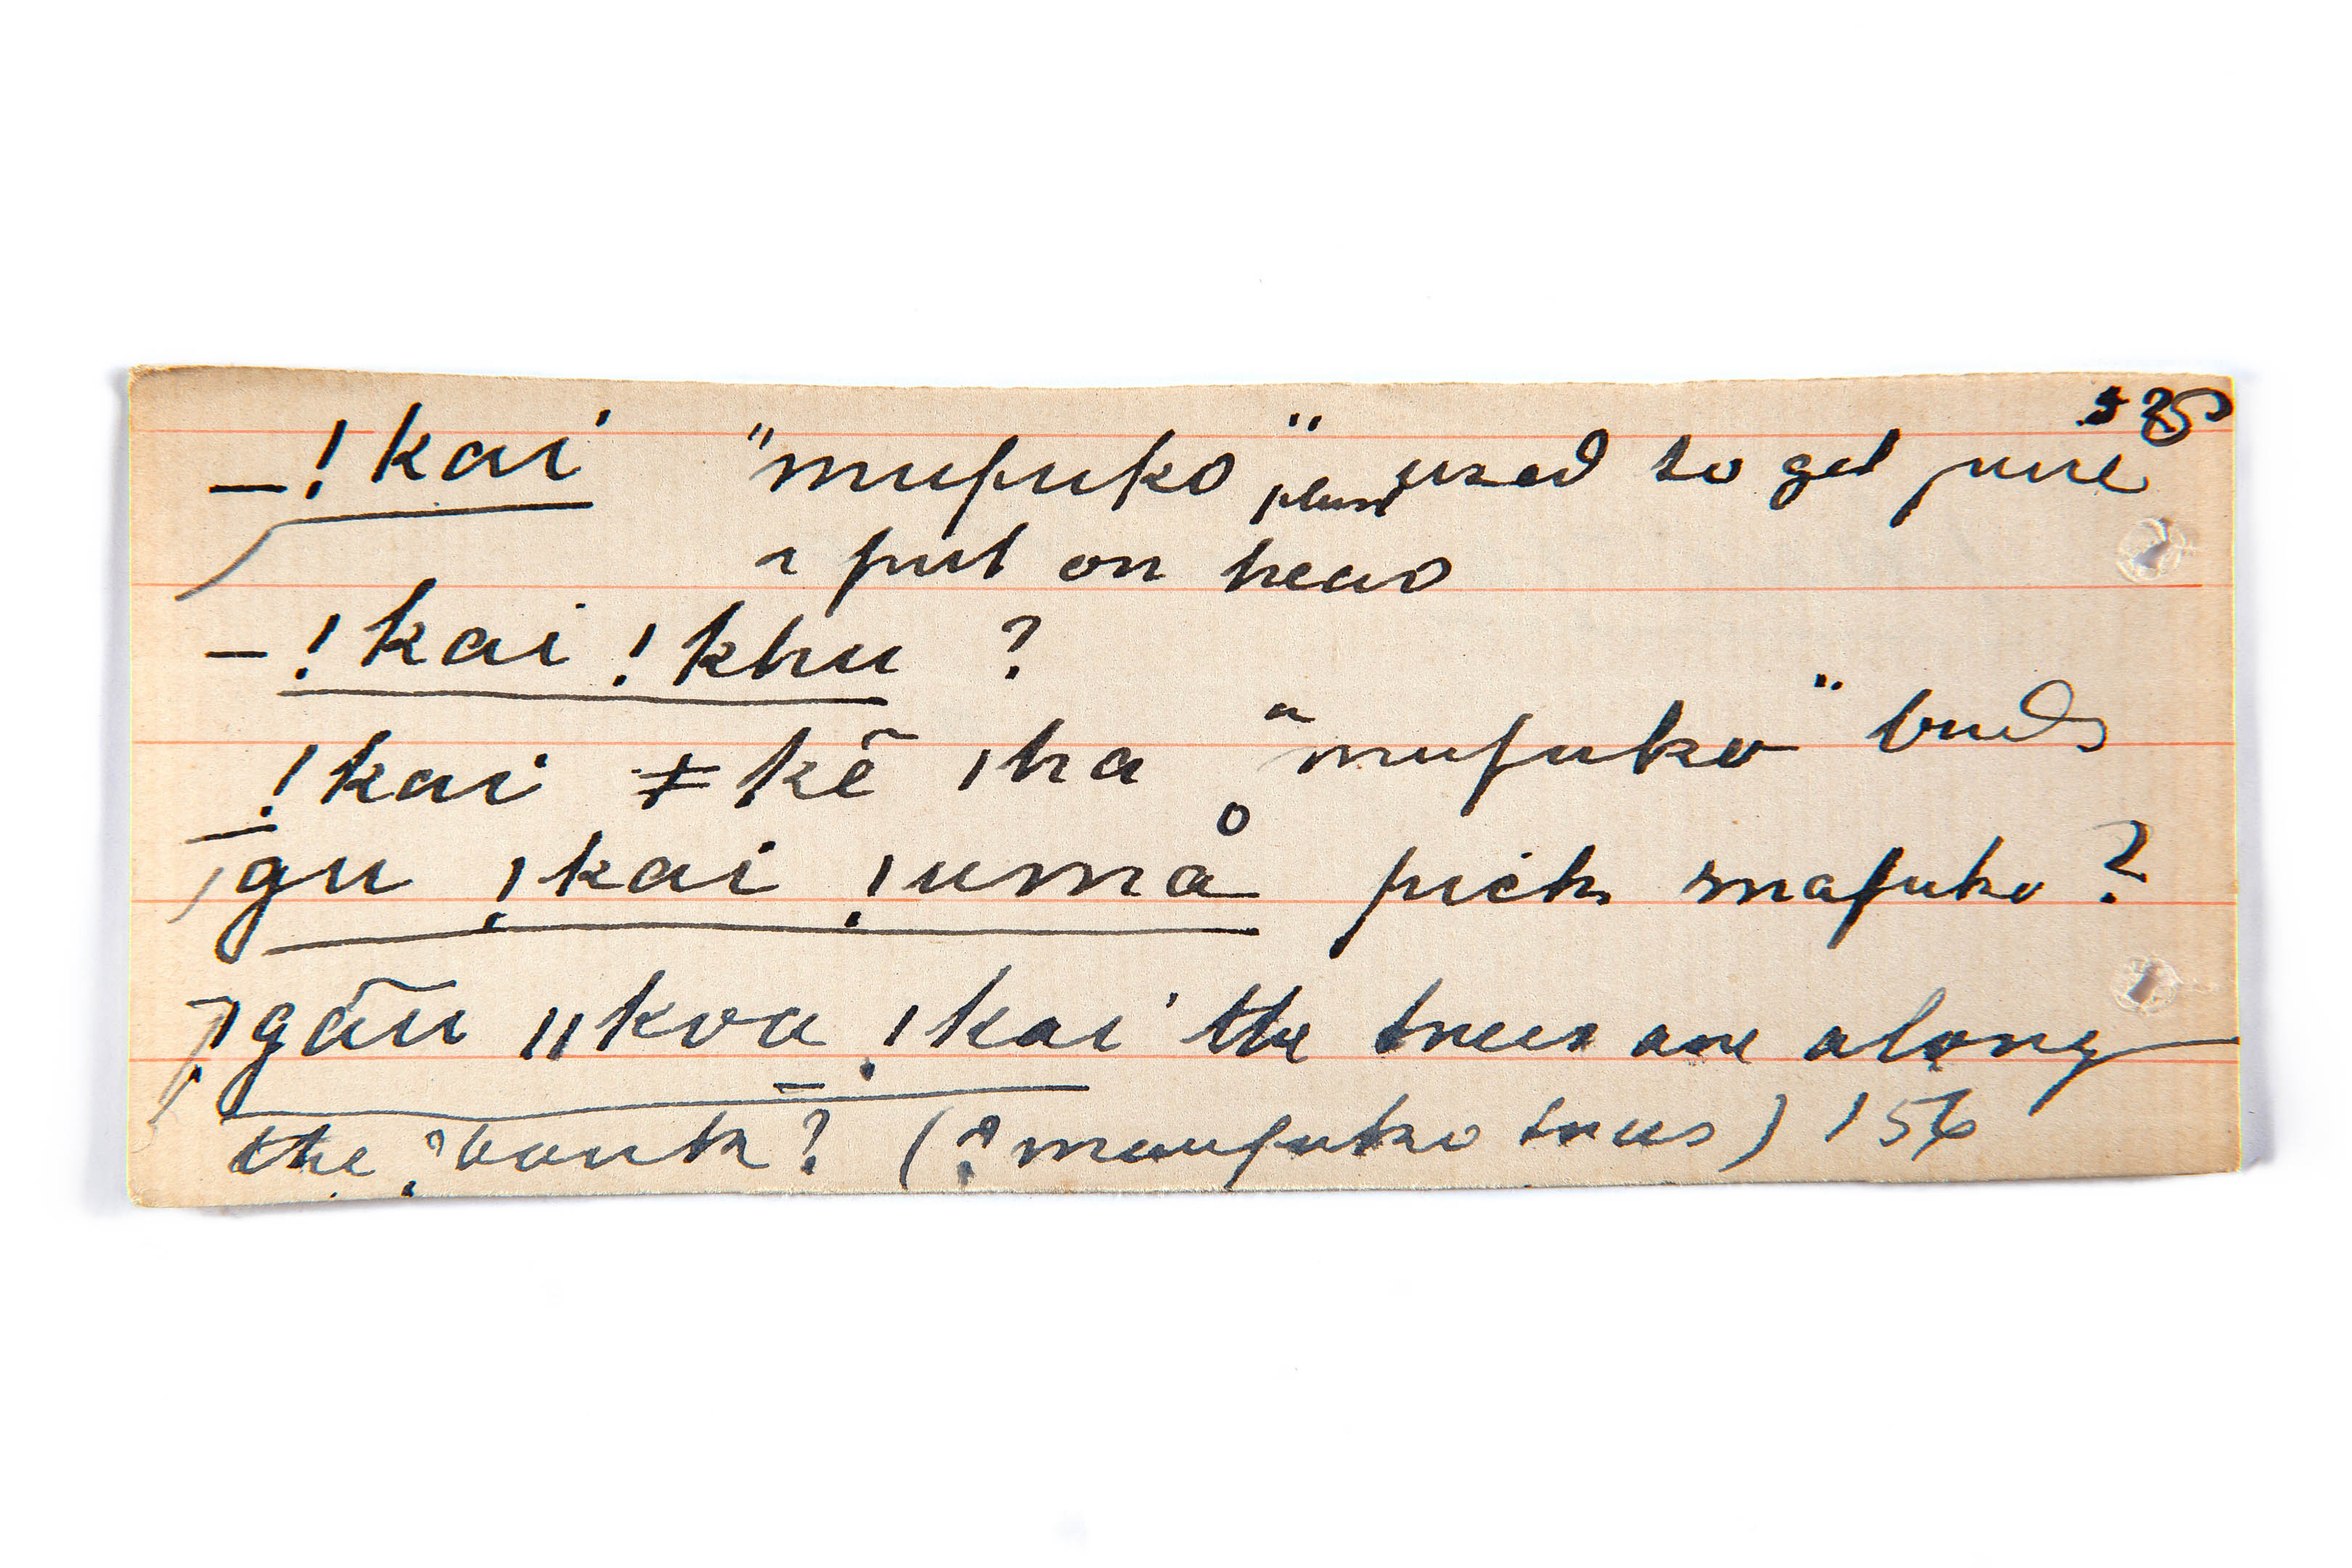 _!kai "mufuko" plant used to get
& put on head
_!kai !khu ?
_!kai ǂkẽ ǀha "mufuko" buds
gu !kai !umå pick mafuko ?
!gãu ǁkva !kai the trees are along
the bank? (? maufuko trees) 156